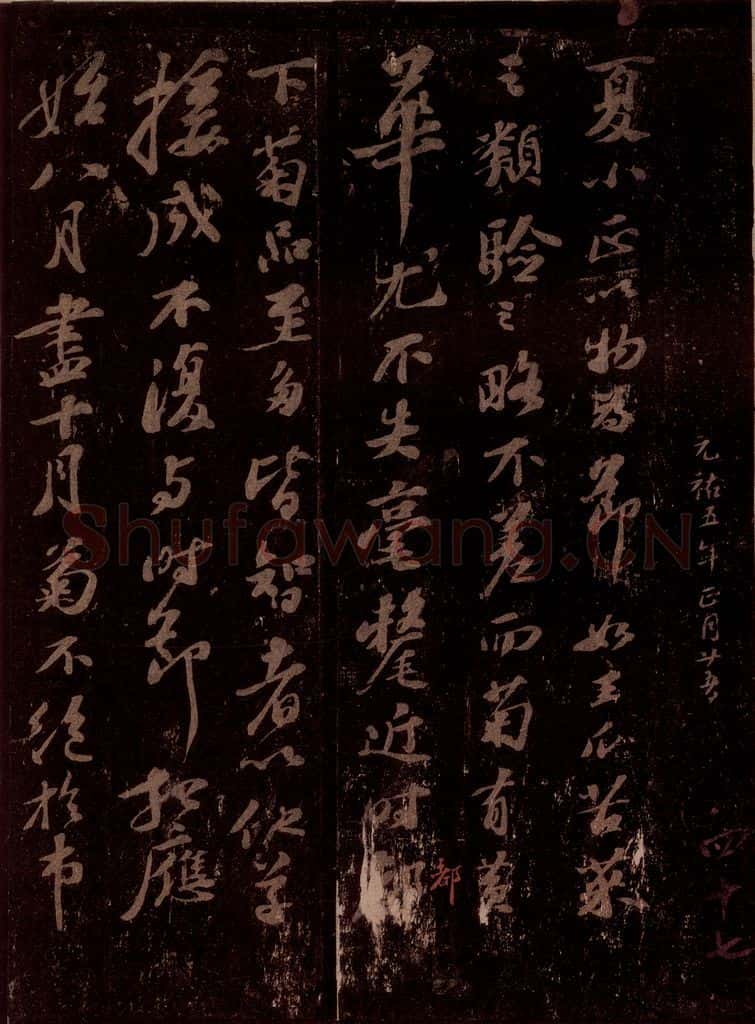 元祐五年正月廿五
四十七
夏小正以物為節如王瓜苦菜
之類驗之略不差而菊有黃
華尤不失毫釐近時都
都
下菊品至多皆智者以他草
接成不復与時節相應
始八月盡十月菊不絕於市
Shufawang.CN